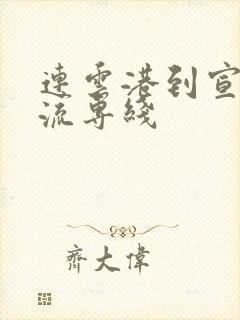 連雲港到宣
流專綫
齊大偉